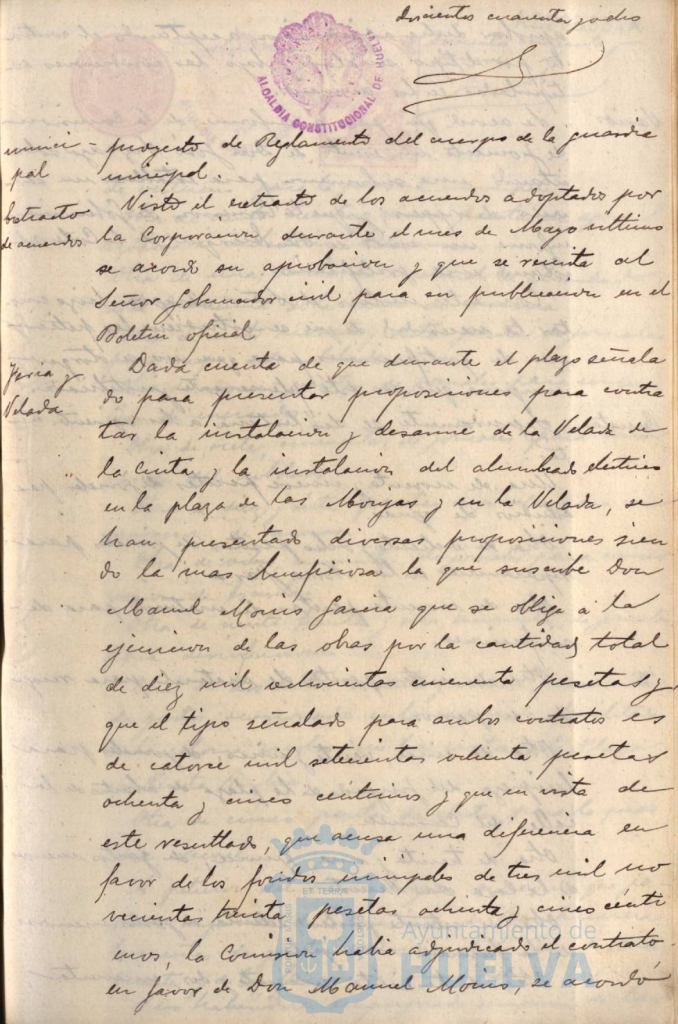 Doscientos cuarenta y ocho
ALCALDIA CONSTITUCIONAL DE HUELVA
munici-
pal
proyecto de Reglamento del cuerpo de la guardia
municipal.
Extracto
de acuerdos
Visto el extracto de los acuerdos adoptados por
la Corporacion durante el mes de Mayo ultimo
se acordó su aprobacion y que se remita al
Señor Gobernador civil para su publicacion en el
Boletin oficial
Feria y
Velada
Dada cuenta de que durante el plazo señala
do para presentar proposiciones para contra
tar la instalacion y desarme de la Velada de
la Cinta y la instalacion del alumbrado electrico
en la plaza de las Monjas y en la Velada, se
han presentado diversas proposiciones sien
do la mas beneficiosa la que suscribe Don
Manuel Garcia que se obliga á la
ejecucion de las obras por la cantidad total
de diez mil ochocientas cincuenta pesetas y
que el tipo señalado para ambos contratos es
de catorce mil setecientas ochenta pesetas
ochenta y cinco centimos y que en vista de
este resultado, que acusa una diferencia en
favor de los fondos municipales de tres mil no
vecientas treinta pesetas ochenta y cinco cénti
mos, la Comision habia adjudicado el contrato
en favor de Don Manuel, se acordó
Ayuntamiento de
HUELVA